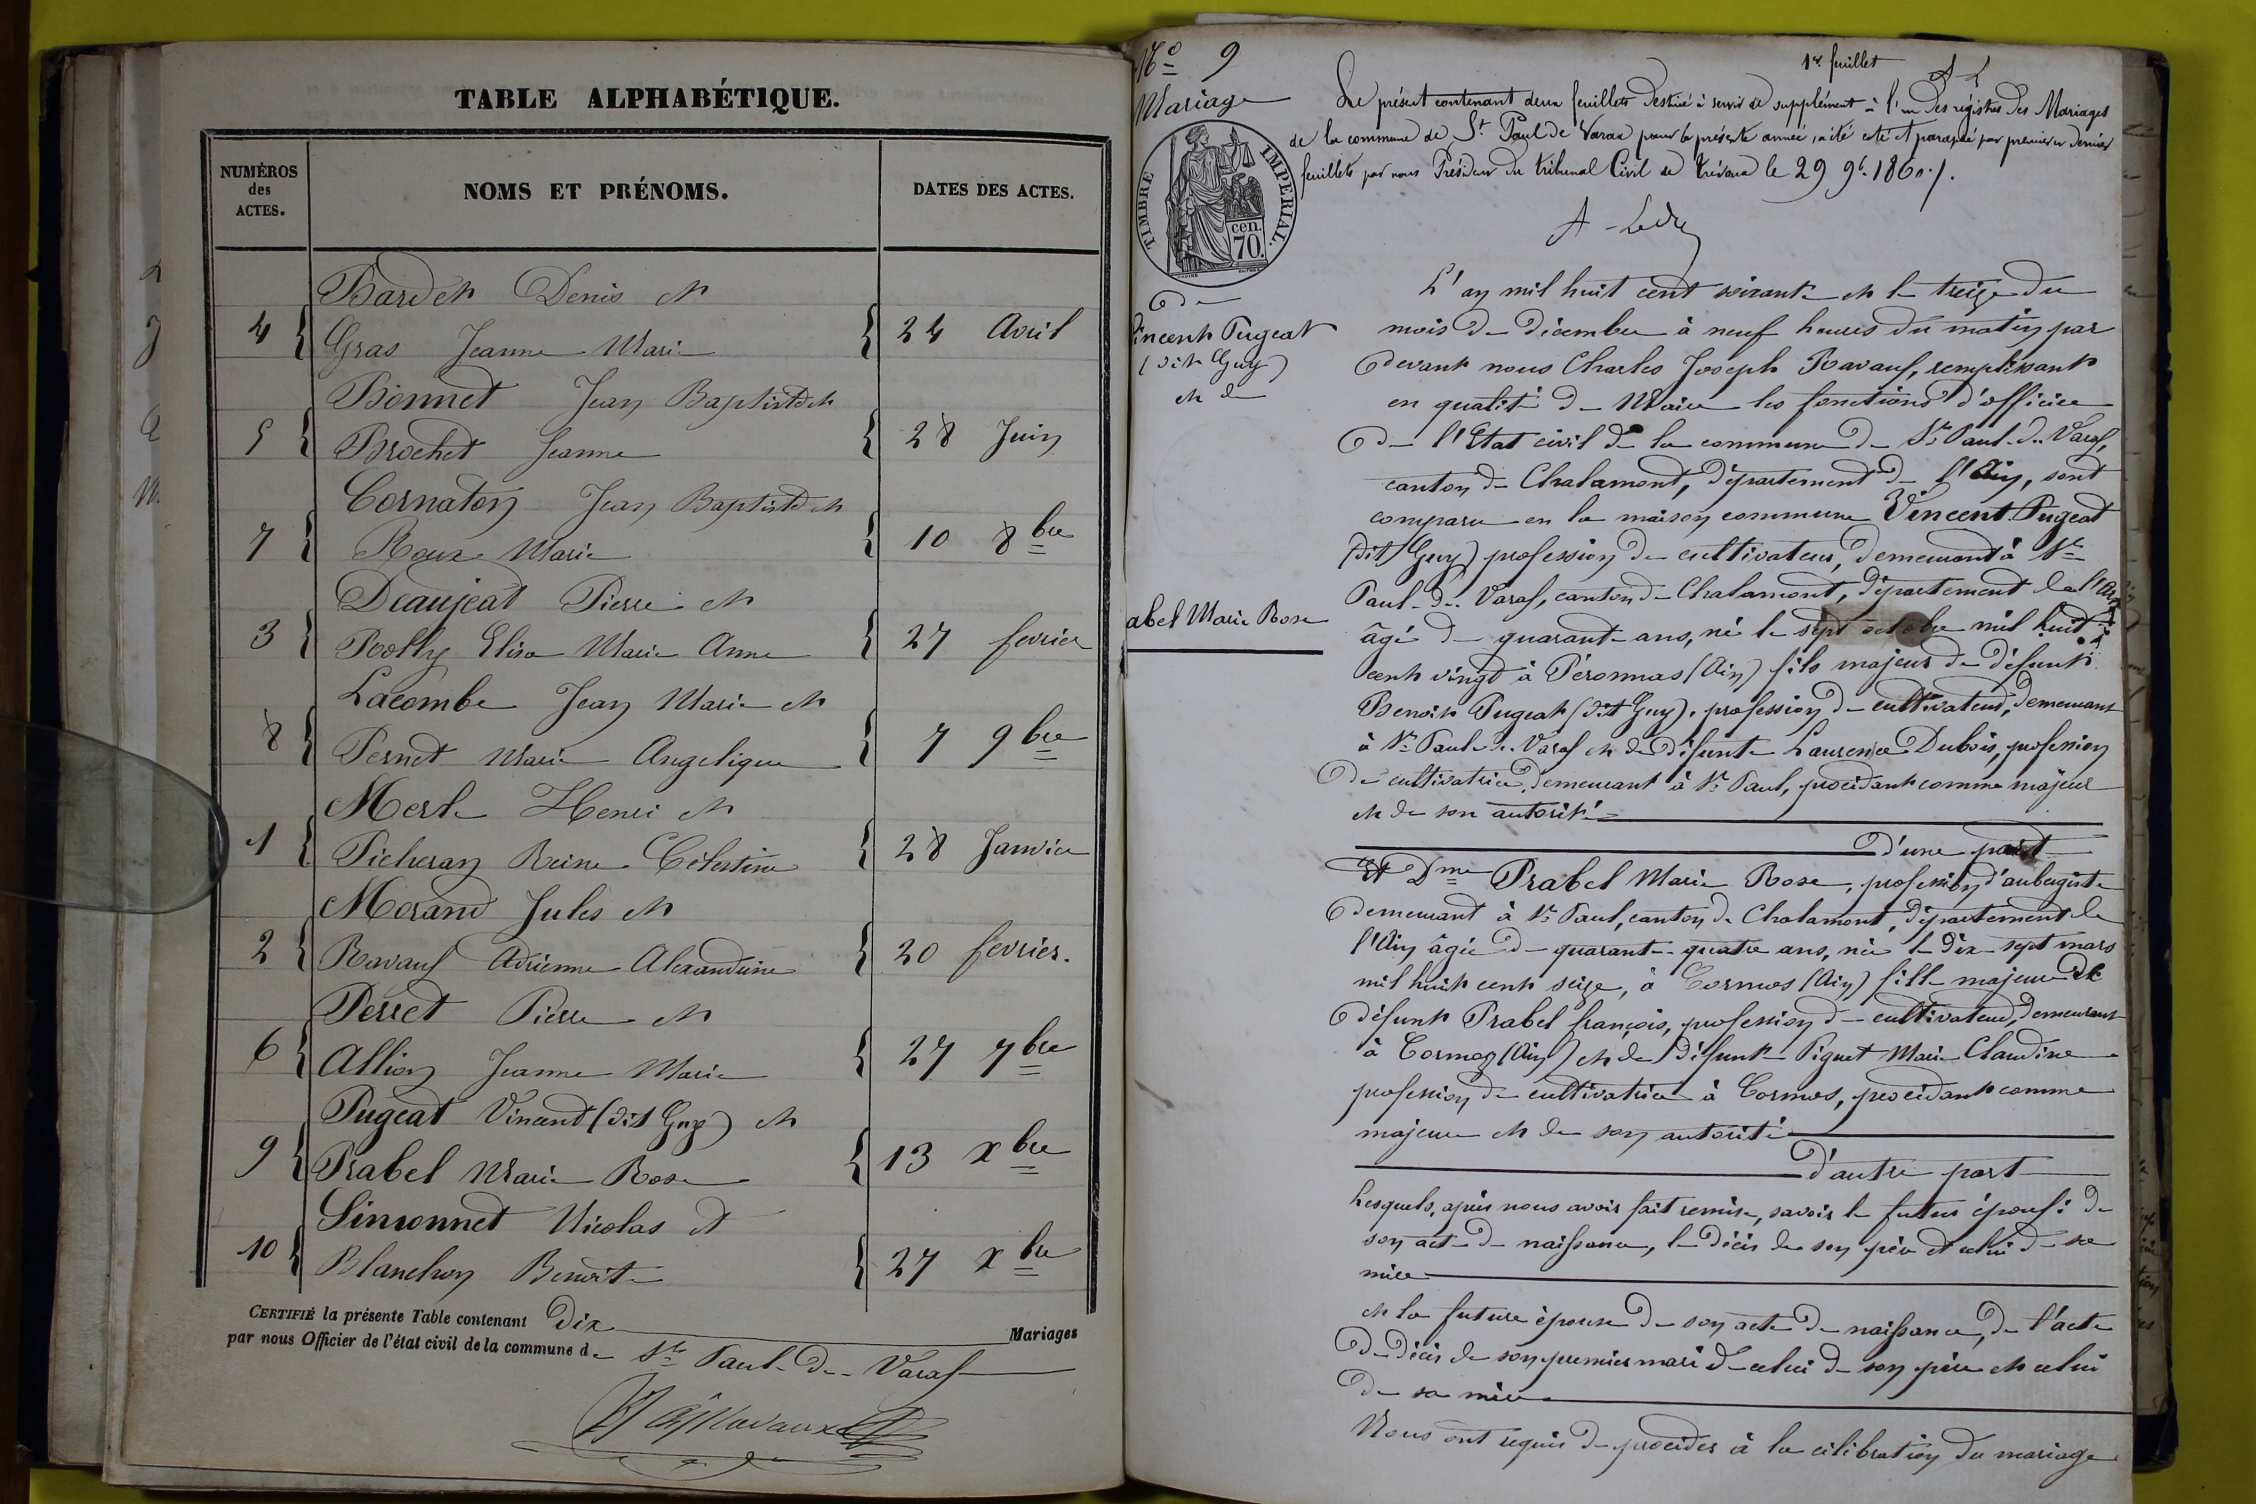 TABLE ALPHABÉTIQUE.
NUMÉROS
des
ACTES.
NOMS ET PRÉNOMS.
DATES DES ACTES.
Denis et
4 Gras Jeanne Marie 24 Avril
Bonnet Jean Baptiste et
5 Brochet Jeanne 28 Juin
Cornaton Jean Baptiste et
7 Roux Marie 10 8bre
Deaujeat Pierre et
3 Rolly Elisa Marie Anne 27 fevrier
Lacombe Jean Marie et
8 Pernet Marie Angelique 7 9bre
Merle Henri et
1 Picheran Reine Celestine 28 Janvier
Morand Jules et
2 Ravaux Adrienne Alexandrine 20 fevrier.
Perret Pierre et
6 Allion Jeanne Marie 27 7bre
Pugeat Vincent (dit Guy) et
9 Prabel Marie Rose 13 xbre
Simonnet Nicolas et
10 Blanchon Benoite 27 xbre
CERTIFIÉ la présente Table contenant Dix Mariages
par nous Officier de l'état civil de la commune de St Paul-de-Varax
Ravaux
No 9
Mariage
1er feuillet
Le présent contenant deux feuillets destiné à servir de supplément à l'un des régistres des Mariages
de la commune de St Paul de Varax pour la présente année, a été coté et paraphé par premier et dernier
feuillets par nous Président du tribunal Civil de Trévoux le 29 9b. 1860./.
TIMBRE IMPERIAL.
cen.
70.
De
incent Pugeat
(dit Guy)
et de
abel Marie Rose
L'an mil huit cent soixante et le treize du
mois de décembre à neuf heures du matin par
devant nous Charles Joseph Ravaux, remplissant
en qualité de Maire les fonctions d'officier
de l'Etat civil de la commune de St Paul-de-Varax,
canton de Chalamont, département de l'Ain, sont
comparu en la maison commune Vincent Pugeat
(dit Guy) profession de cultivateur, demeurant à St
Paul-de-Varax, canton de Chalamont, département de l'Ain
âgé de quarante ans, né le sept octobre mil huit
cent vingt à Péronnas (Ain) fils majeur de défunt
Benoit Pugeat (dit Guy), profession de cultivateur, demeurant
à St Paul-de-Varax et de défunte Laurence Dubois, profession
de cultivatrice, demeurant à St Paul, procédant comme majeur
et de son autorité
D'une part
Et Dme Prabel Marie Rose, profession d'aubergiste
demeurant à St Paul, canton de Chalamont, département de
l'Ain âgée de quarante-quatre ans, née le dix-sept mars
mil huit cent seize, à Cormos (Ain) fille majeure de
défunt Prabel françois, profession de cultivateur, demeurant
à Cormoz (Ain) et de défunte Piguet Marie Claudine
profession de cultivatrice à Cormos, procédant comme
majeure et de son autorité
d'autre part
Lesquels, après nous avoir fait remise, savoir le futur époux: de
son acte de naissance, le décès de son père et celui de sa
mère
et la future épouse de son acte de naissance, de l'acte
de décès de son premier mari de celui de son père et celui
de sa mère
Nous ont requis de procéder à la célébration du mariage